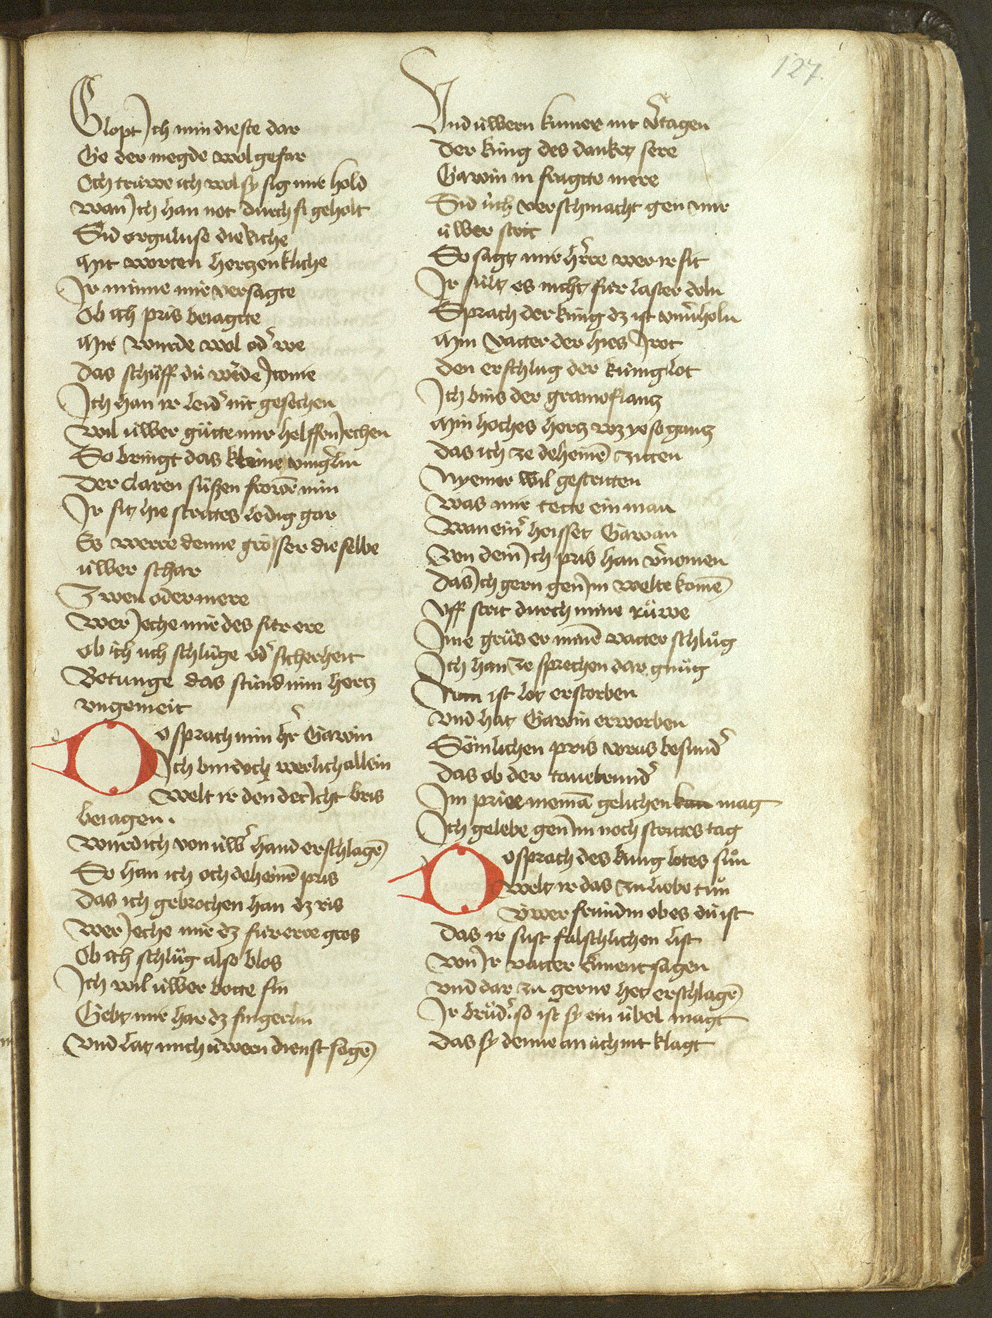 127.
Glopt Ich min dieste dar
Ge der megde wol gefar
Och trúwe ich wol sy sig mir hold
wan Ich han not durch si geholt
Sid orguluse die riche
Mit worten hertzenkliche
Ir minne mir versagte
Ob ich pris beiagtte
Mir wurde wol od' we
Das schüff du wᵉde Itonie
Ich han ir leid' nit gesechen
wil úwer gútte mir helffen Iechen
So bringt das kleine vingerlin
Der claren süssen frowen min
Ir sitz hie strittes ledig gar
Es werre denne grösser die selbe
úwer schar
Zwen oder mere
Wer Ieche mir des für ere
ob ich uch schlüge od' sicherheit
Betunge das stünd min hertz
vngemeit
Do sprach min h'r Gawin
Ich bin doch werlich allein
Welt ir den der Icht bris
beiagen .
Wurd ich von úw' hand erschlagē
So han ich och deheinē pris
Das ich gebrochen han dz ris
Wer Ieche mir dz für erre gros
Ob ich schlüg also blos
Ich wil úwer botte sin
Gebt mir har dz fingerlin
Vnd lat mich úwern dienst sagē
Vnd úwern kumer nit v'tagen
Der küng des dankt sere
Gawin in fragtte mere
Sid úch verschmacht gen mir
úwer strit
So sagt mir h're wer ir sit
Ir sült es nicht für laster doln
Sprach der küng dz ist vnu'holn
Min vatter der hies Irot
Den erschlug der künig lot
Ich bins der gramoflantz
Min hoches hertz wz ye so gantz
Das ich ze deheinē ziten
Nyemer wil gestritten
Was mir tette ein man
Wan ein' heisset Gawan
Von dem Ich pris han v'nomen
Das Ich gern gen Im welte komē
Vff strit durch mine rüwe
Sine grüs er minē vatter schlůg
Ich han ze sprechen dar gnüg
Nun ist lot erstorben
Vnd hat Gawin erworben
Sömlichen pris vorus besund'
Das ob der tauelrund'
Im prise niemā gelichen kan mag
Ich gelebe gen Im noch strittes tag
Do sprach des küng lotes sůn
Welt ir das zu liebe tůn
Vwer fründin obes dú ist
Das ir sust falschlichen list
Von Ir vatter kúnent sagen
Vnd dar zu gerne het erschlagē
Ir brüd' so ist sy ein übel magt
Das sy denne an úch nit klagt